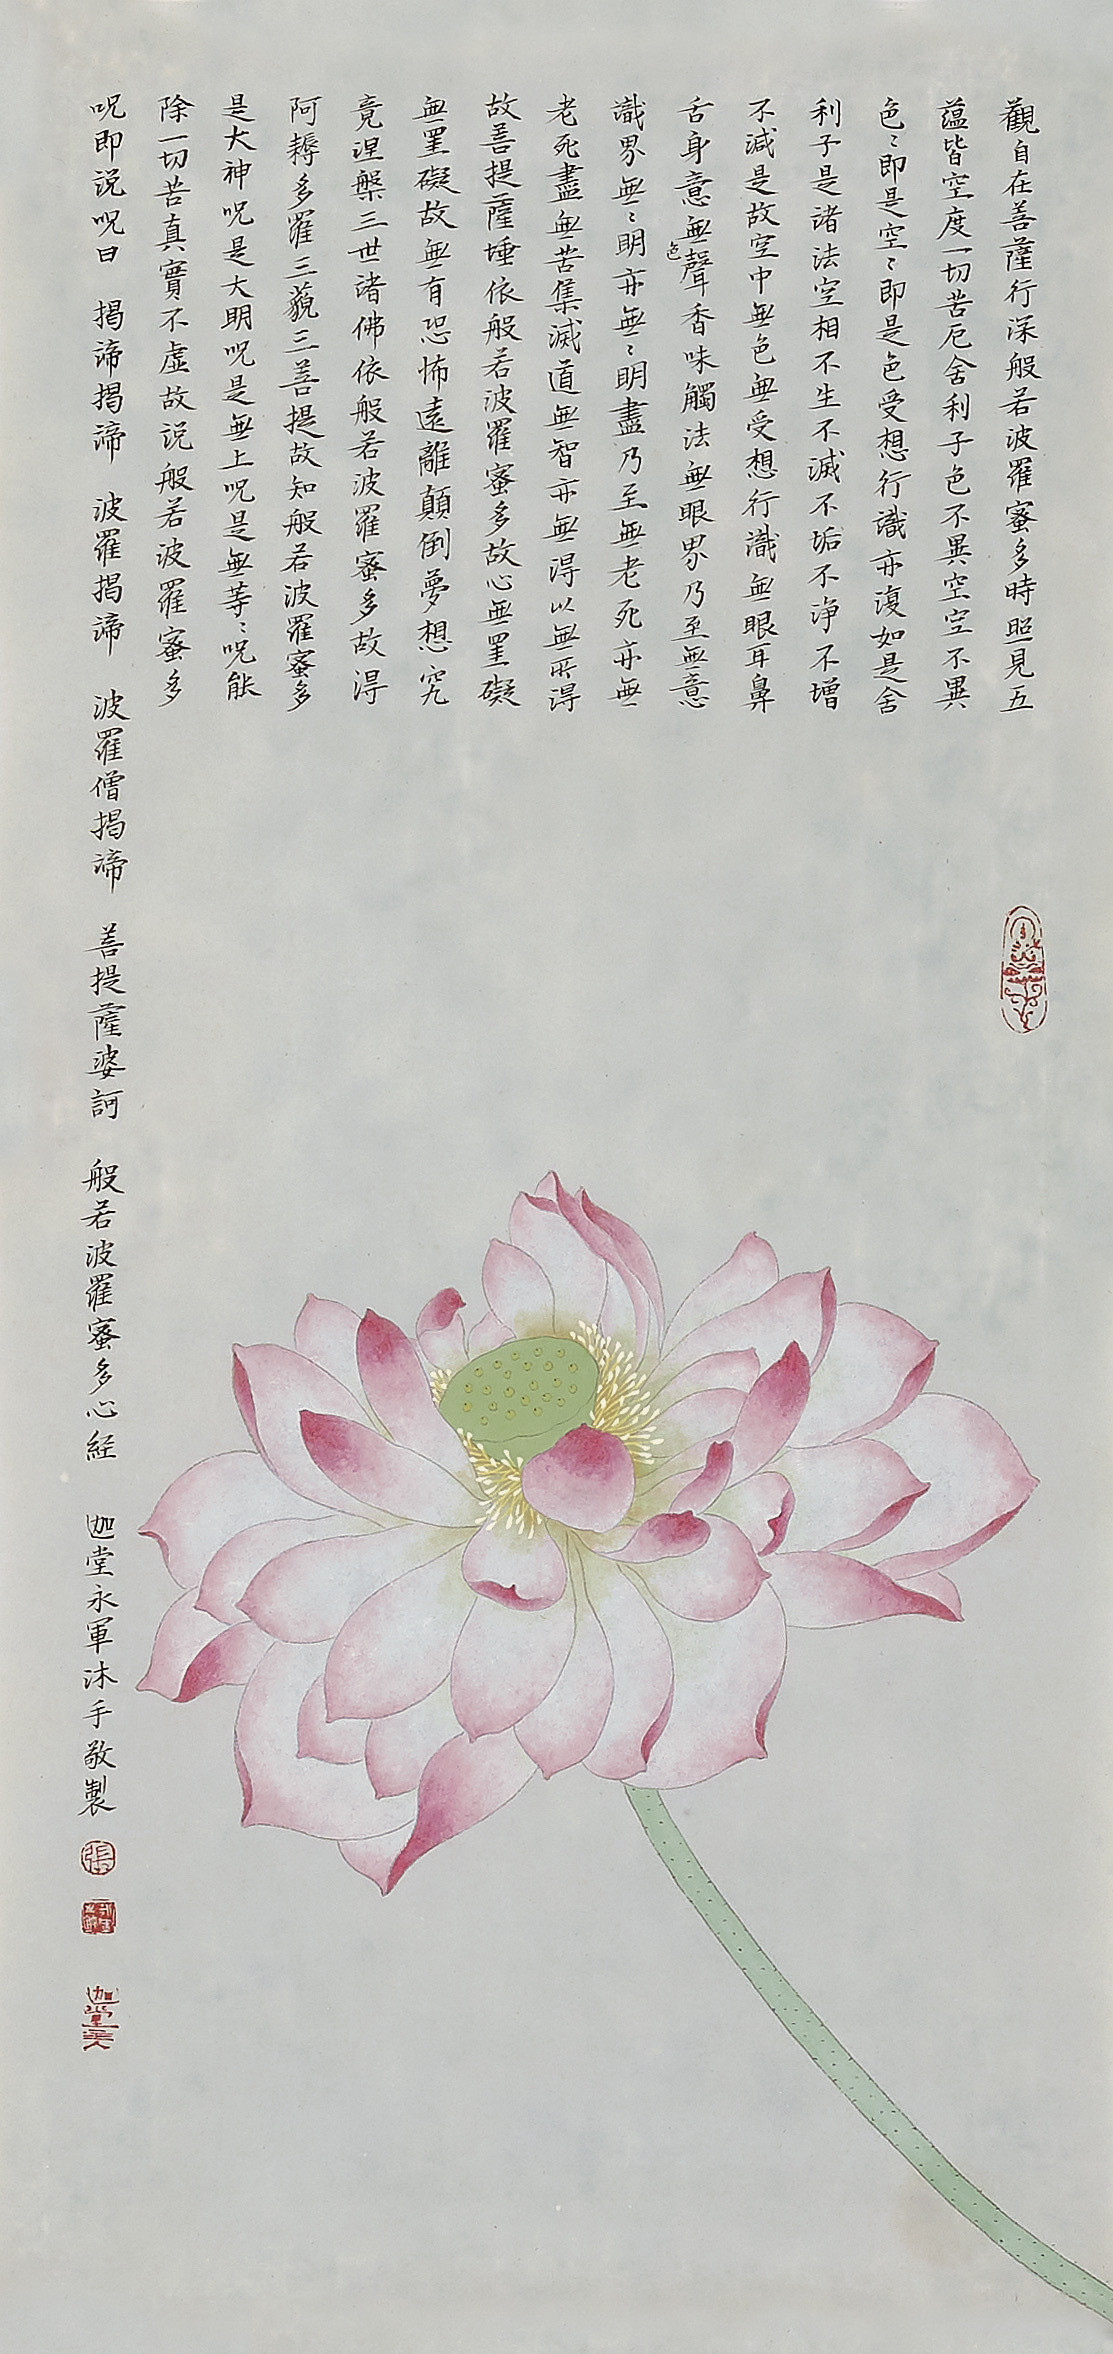 觀自在菩薩行深般若波羅蜜多時照見五
蘊皆空度一切苦厄舍利子色不異空空不異
色〻即是空〻即是色受想行識亦復如是舍
利子是諸法空相不生不滅不垢不净不增
不減是故空中無色無受想行識無眼耳鼻
舌身意無色聲香味觸法無眼界乃至無意
識界無〻明亦無〻明盡乃至無老死亦無
老死盡無苦集滅道無智亦無得以無所得
故菩提薩埵依般若波羅蜜多故心無罣礙
無罣礙故無有恐怖遠離顛倒夢想究
竟涅槃三世諸佛依般若波羅蜜多故得
阿耨多羅三藐三菩提故知般若波羅蜜多
是大神呪是大明呪是無上呪是無等〻呪能
除一切苦真實不虛故説般若波羅蜜多
呪即説呪曰 揭諦揭諦 波羅揭諦 波羅僧揭諦 菩提薩婆訶 般若波羅蜜多心経 迦堂永軍沐手敬製
張